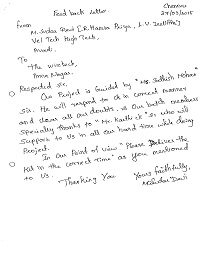 Feed back letter
Chennai
27/03/2015
From
M. Sridevi Devi
Vel Tech High Tech,
Avadi.
To
The wine tech,
Anna Nagar.
Respected sir,
Our Project is Guided by "Mr. Sathish Mohan"
sir. He will respond to us in correct manner
and clears all our doubts. Our batch members
specially thanks to "Mr. Karthick" sir who will
Support to Us in all our hard time while doing
Project.
In Our Point of view "Please Deliver the
kit in the correct time" as you mentioned
to Us.
Thanking You
Yours faithfully,